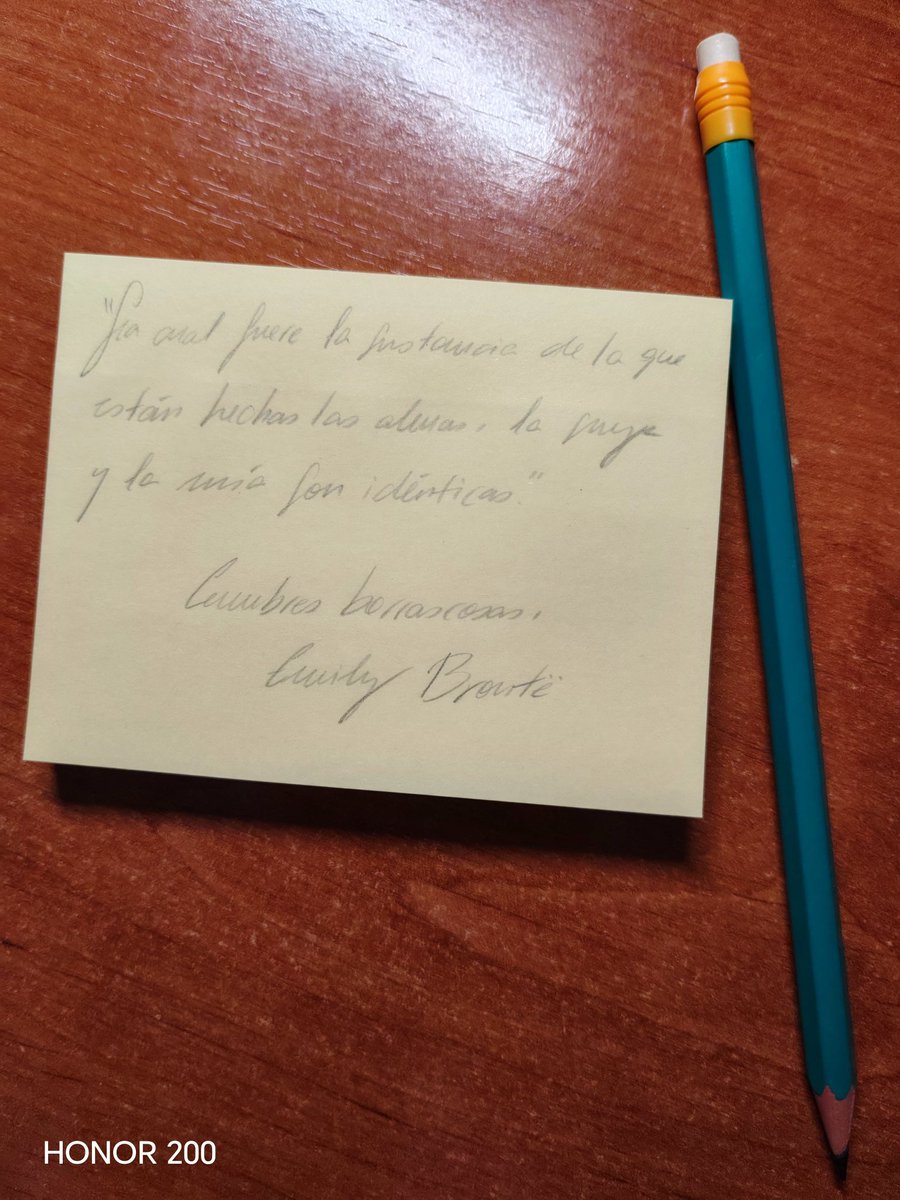 "Sea cual fuere la sustancia de la que
están hechas las almas, la suya
y la mía son idénticas."
Cumbres borrascosas.
Emily Brontë
HONOR 200